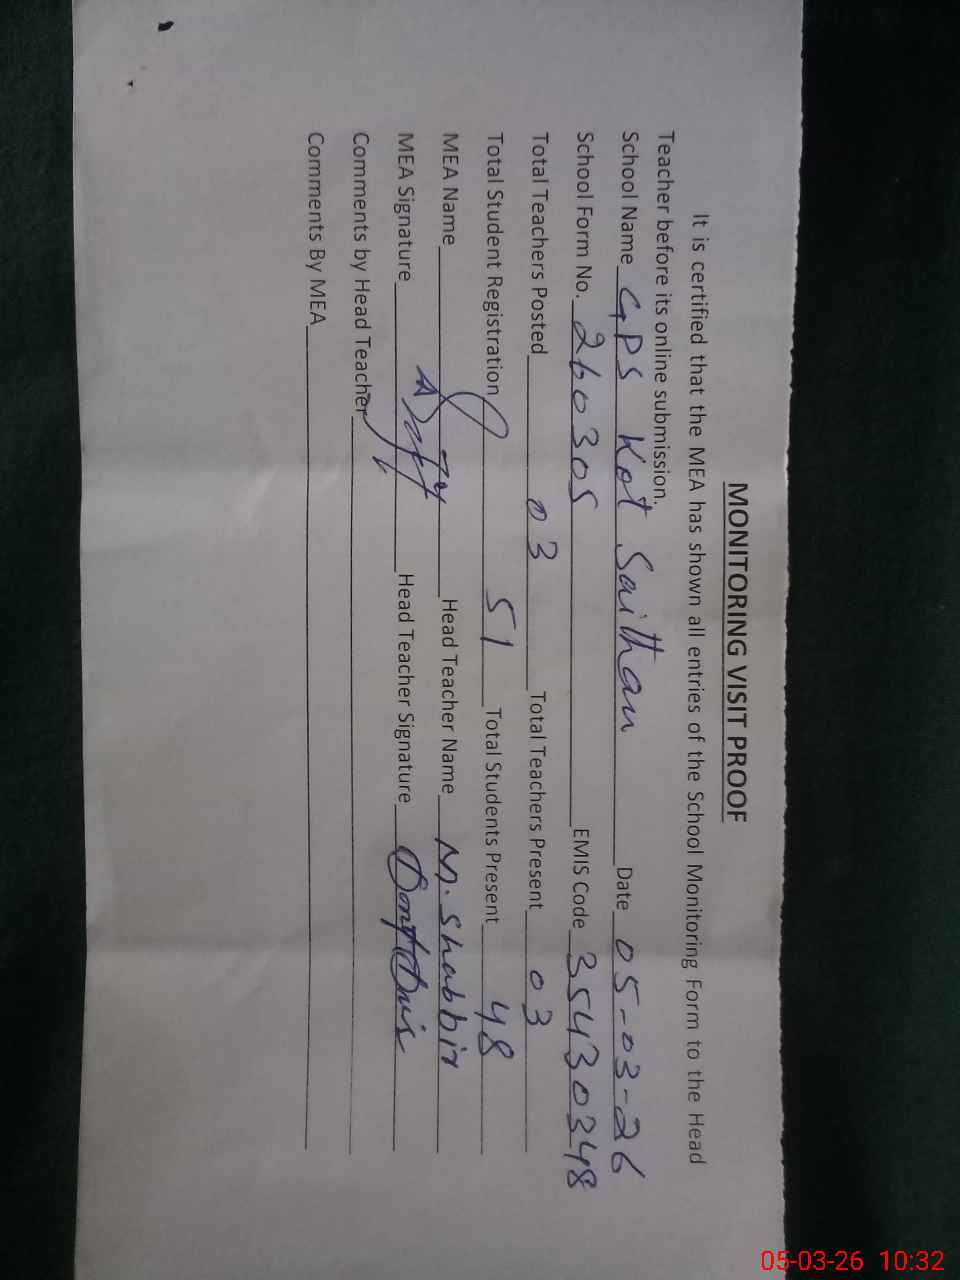 MONITORING VISIT PROOF
It is certified that the MEA has shown all entries of the School Monitoring Form to the Head
Teacher before its online submission.
School Name GPS Kot Saithan Date 05-03-26
School Form No. 260305 EMIS Code 35430348
Total Teachers Posted 03 Total Teachers Present 03
Total Student Registration 51 Total Students Present 48
MEA Name Head Teacher Name M. Shabbir
MEA Signature Head Teacher Signature
Comments by Head Teacher
Comments By MEA
05-03-26 10:32